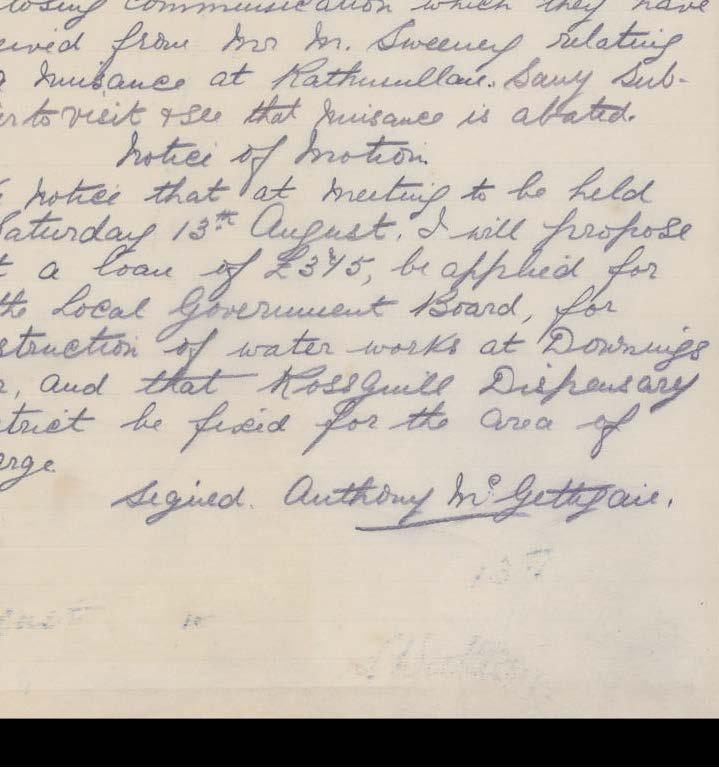 losing communication which they have
eived from Mr M. Sweeney relating
nuisance at Rathmullan. Sany Sub-
er to visit & see that nuisance is abated.
Notice of Motion.
notice that at meeting to be held
Saturday 13th August. I will propose
t a loan of £375, be applied for
the Local Government Board, for
struction of water works at Downings
r, and that Rossguill Dispensary
strict be fixed for the area of
arge
Signed. Anthony McGettigan.
13th